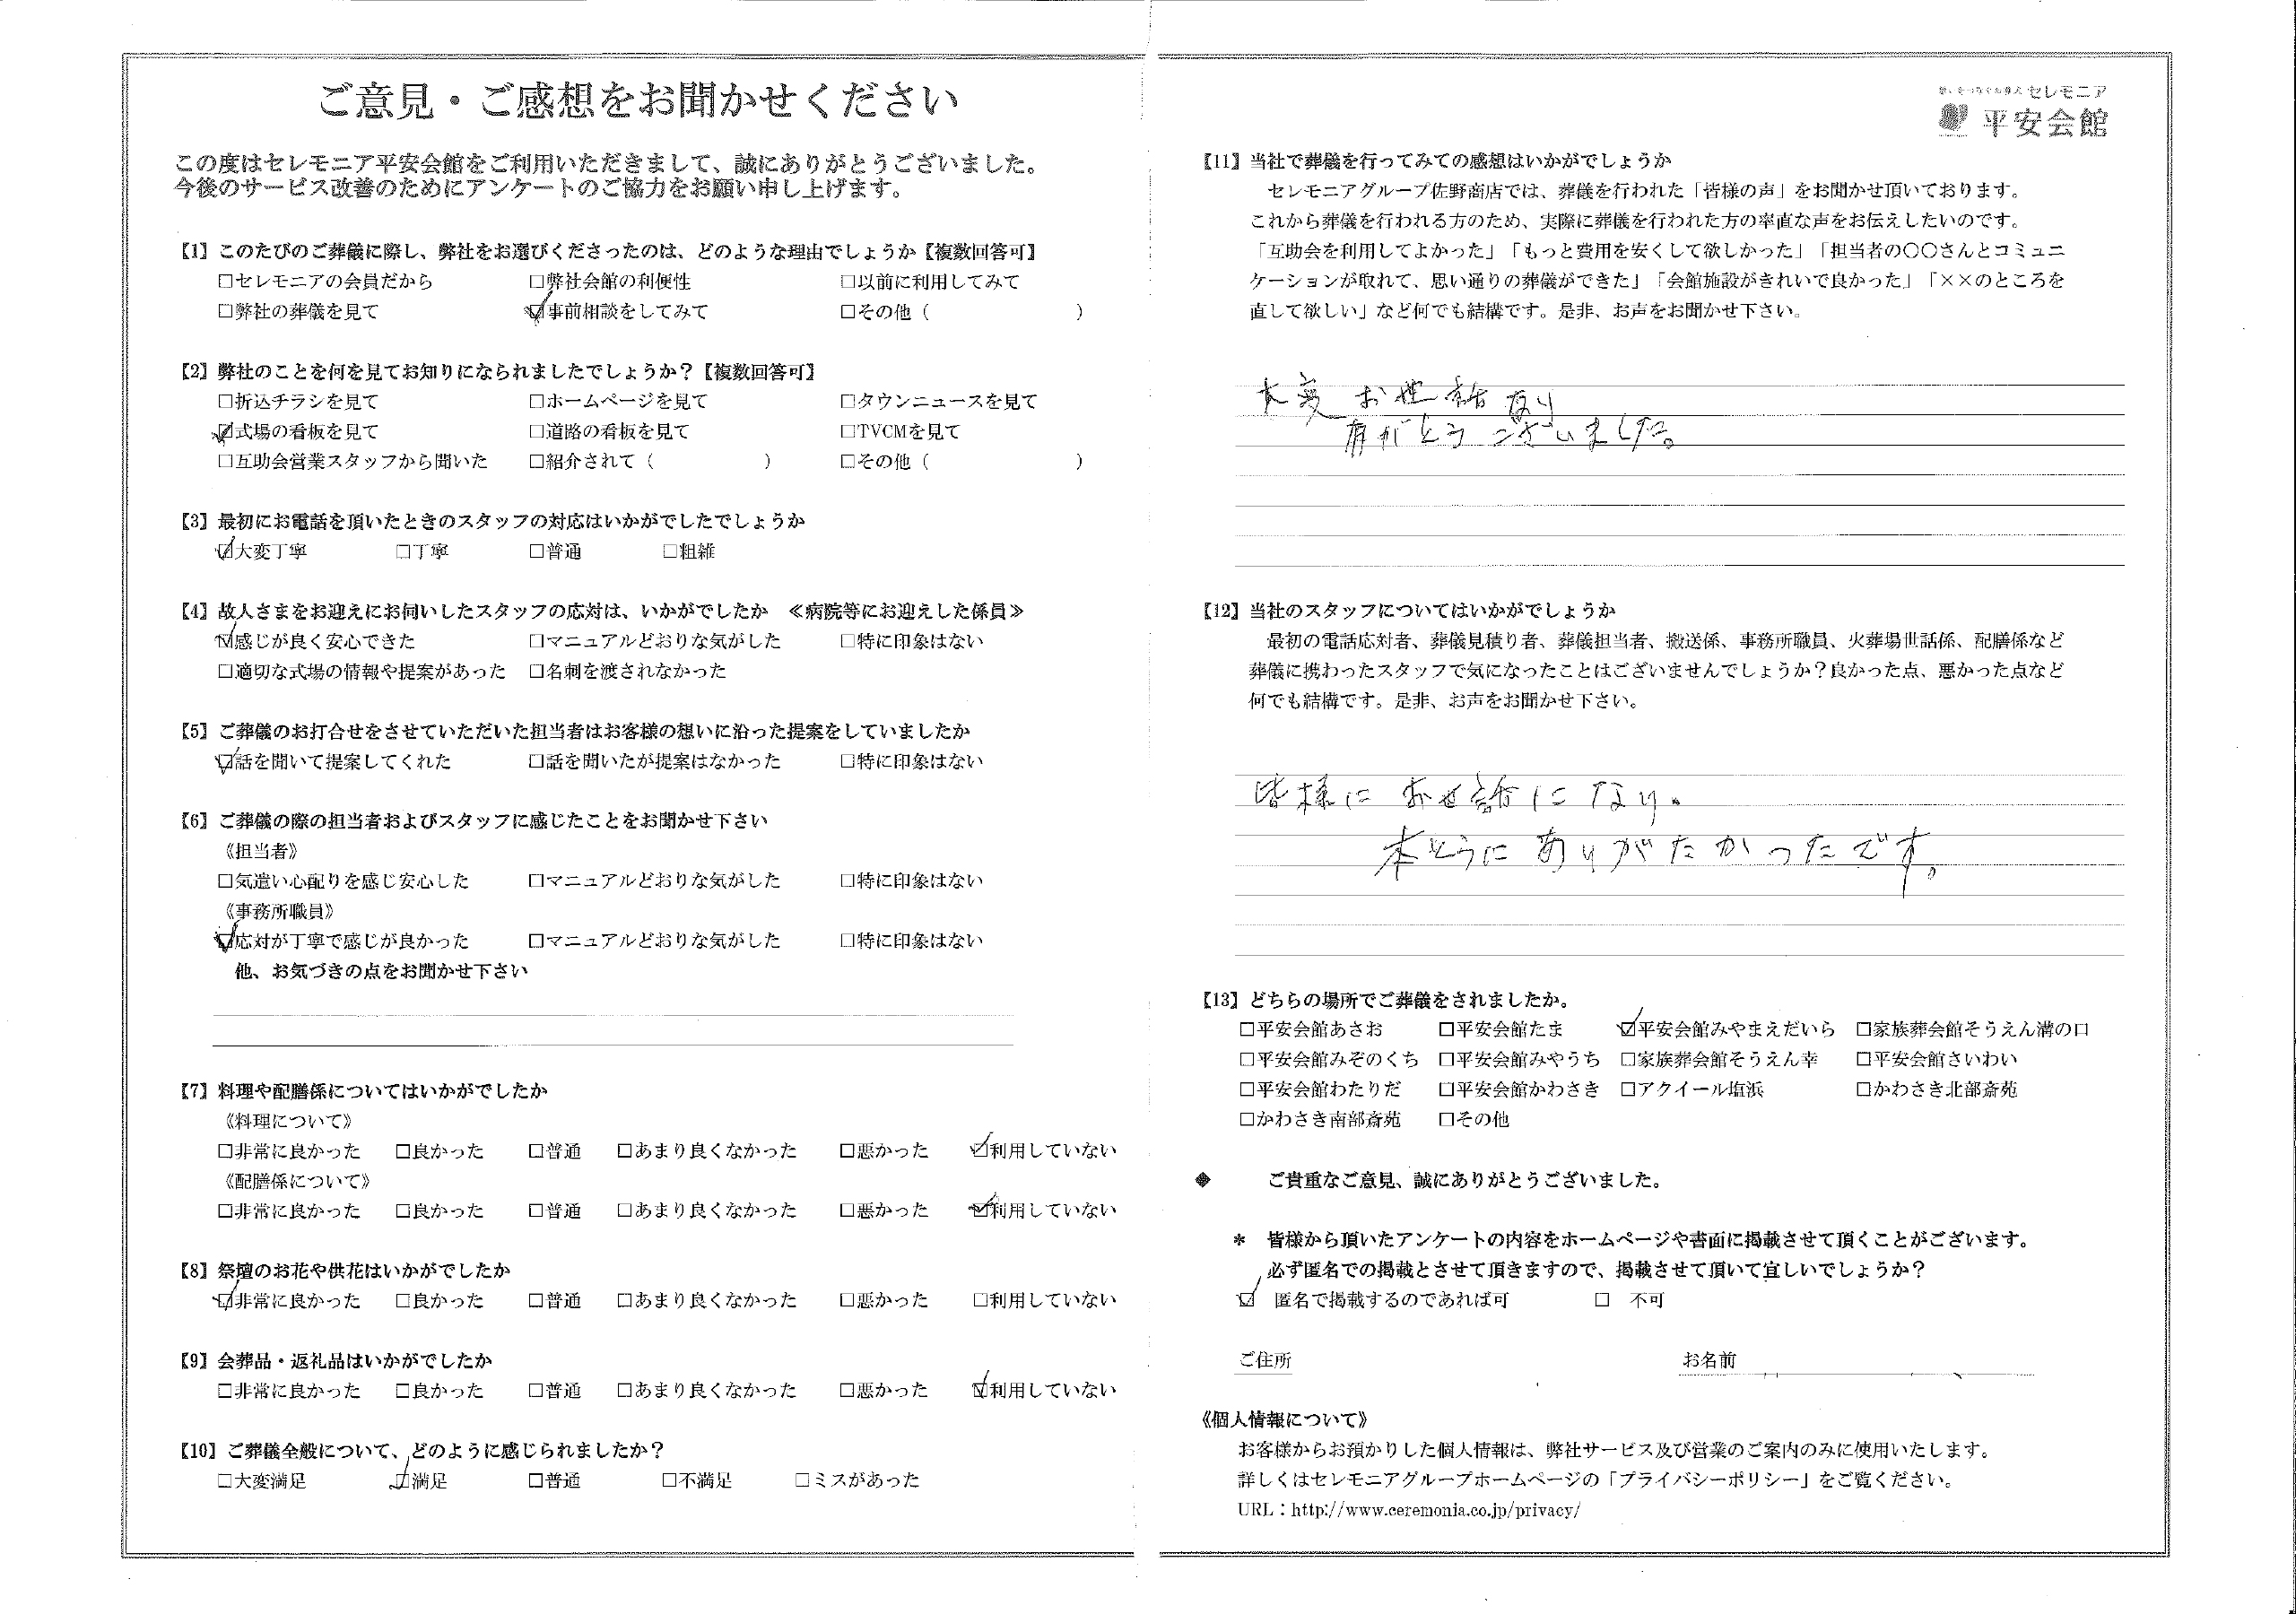 ご意見・ご感想をお聞かせください
この度はセレモニア平安会館をご利用いただきまして、誠にありがとうございました。
今後のサービス改善のためにアンケートのご協力をお願い申し上げます。
【1】このたびのご葬儀に際し、弊社をお選びくださったのは、どのような理由でしょうか【複数回答可】
□セレモニアの会員だから □弊社会館の利便性 □以前に利用してみて
□弊社の葬儀を見て ☑事前相談をしてみて □その他（ ）
【2】弊社のことを何を見てお知りになられましたでしょうか？【複数回答可】
□折込チラシを見て □ホームページを見て □タウンニュースを見て
☑式場の看板を見て □道路の看板を見て □TVCMを見て
□互助会営業スタッフから聞いた □紹介されて（ ） □その他（ ）
【3】最初にお電話を頂いたときのスタッフの対応はいかがでしたでしょうか
☑大変丁寧 □丁寧 □普通 □粗雑
【4】故人さまをお迎えにお伺いしたスタッフの応対は、いかがでしたか ≪病院等にお迎えした係員≫
☑感じが良く安心できた □マニュアルどおりな気がした □特に印象はない
□適切な式場の情報や提案があった □名刺を渡されなかった
【5】ご葬儀のお打合せをさせていただいた担当者はお客様の想いに沿った提案をしていましたか
☑話を聞いて提案してくれた □話を聞いたが提案はなかった □特に印象はない
【6】ご葬儀の際の担当者およびスタッフに感じたことをお聞かせ下さい
《担当者》
□気遣い心配りを感じ安心した □マニュアルどおりな気がした □特に印象はない
《事務所職員》
☑応対が丁寧で感じが良かった □マニュアルどおりな気がした □特に印象はない
他、お気づきの点をお聞かせ下さい
【7】料理や配膳係についてはいかがでしたか
《料理について》
□非常に良かった □良かった □普通 □あまり良くなかった □悪かった ☑利用していない
《配膳係について》
□非常に良かった □良かった □普通 □あまり良くなかった □悪かった ☑利用していない
【8】祭壇のお花や供花はいかがでしたか
☑非常に良かった □良かった □普通 □あまり良くなかった □悪かった □利用していない
【9】会葬品・返礼品はいかがでしたか
□非常に良かった □良かった □普通 □あまり良くなかった □悪かった ☑利用していない
【10】ご葬儀全般について、どのように感じられましたか？
□大変満足 ☑満足 □普通 □不満足 □ミスがあった
セレモニア
平安会館
【11】当社で葬儀を行ってみての感想はいかがでしょうか
セレモニアグループ佐野商店では、葬儀を行われた「皆様の声」をお聞かせ頂いております。
これから葬儀を行われる方のため、実際に葬儀を行われた方の率直な声をお伝えしたいのです。
「互助会を利用してよかった」「もっと費用を安くして欲しかった」「担当者の〇〇さんとコミュニ
ケーションが取れて、思い通りの葬儀ができた」「会館施設がきれいで良かった」「××のところを
直して欲しい」など何でも結構です。是非、お声をお聞かせ下さい。
大変 お世話なり
有がとうございました。
【12】当社のスタッフについてはいかがでしょうか
最初の電話応対者、葬儀見積り者、葬儀担当者、搬送係、事務所職員、火葬場世話係、配膳係など
葬儀に携わったスタッフで気になったことはございませんでしょうか？良かった点、悪かった点など
何でも結構です。是非、お声をお聞かせ下さい。
皆様に お世話になり。
本とうに ありがたかったです。
【13】どちらの場所でご葬儀をされましたか。
□平安会館あさお □平安会館たま ☑平安会館みやまえだいら □家族葬会館そうえん溝の口
□平安会館みぞのくち □平安会館みやうち □家族葬会館そうえん幸 □平安会館さいわい
□平安会館わたりだ □平安会館かわさき □アクイール塩浜 □かわさき北部斎苑
□かわさき南部斎苑 □その他
◆ ご貴重なご意見、誠にありがとうございました。
＊ 皆様から頂いたアンケートの内容をホームページや書面に掲載させて頂くことがございます。
必ず匿名での掲載とさせて頂きますので、掲載させて頂いて宜しいでしょうか？
☑ 匿名で掲載するのであれば可 □ 不可
ご住所 お名前
《個人情報について》
お客様からお預かりした個人情報は、弊社サービス及び営業のご案内のみに使用いたします。
詳しくはセレモニアグループホームページの「プライバシーポリシー」をご覧ください。
URL：http://www.ceremonia.co.jp/privacy/